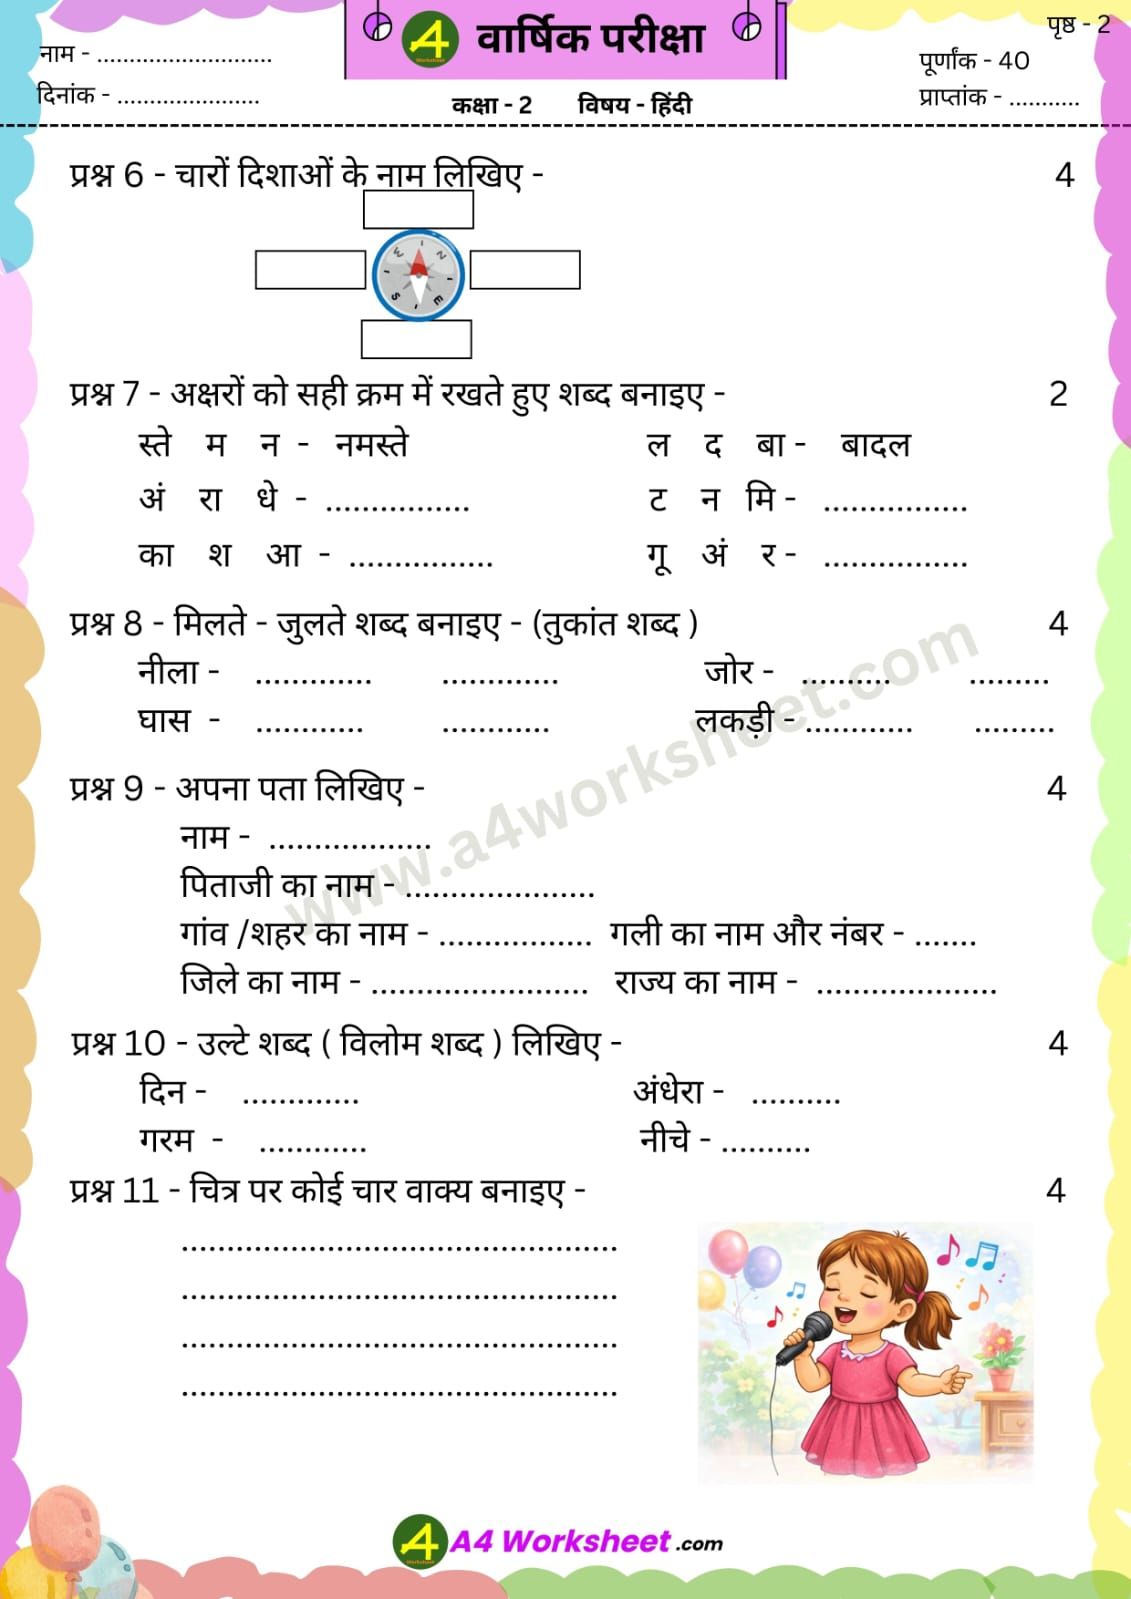 पृष्ठ - 2
वार्षिक परीक्षा
नाम - ...........................
पूर्णांक - 40
दिनांक - ......................
प्राप्तांक - ...........
कक्षा - 2 विषय - हिंदी
प्रश्न 6 - चारों दिशाओं के नाम लिखिए - 4
W N
S E
प्रश्न 7 - अक्षरों को सही क्रम में रखते हुए शब्द बनाइए - 2
स्ते म न - नमस्ते ल द बा - बादल
अं रा धे - ................ ट न मि - ................
का श आ - ................ गू अं र - ................
प्रश्न 8 - मिलते - जुलते शब्द बनाइए - (तुकांत शब्द ) 4
नीला - ............. ............. जोर - .......... .........
घास - ............ ............ लकड़ी - ............ .........
प्रश्न 9 - अपना पता लिखिए - 4
नाम - ..................
पिताजी का नाम - .....................
गांव /शहर का नाम - ................. गली का नाम और नंबर - .......
जिले का नाम - ........................ राज्य का नाम - ....................
प्रश्न 10 - उल्टे शब्द ( विलोम शब्द ) लिखिए - 4
दिन - ............. अंधेरा - ..........
गरम - ............ नीचे - ..........
प्रश्न 11 - चित्र पर कोई चार वाक्य बनाइए - 4
................................................
................................................
................................................
................................................
www.a4worksheet.com
A4 Worksheet .com